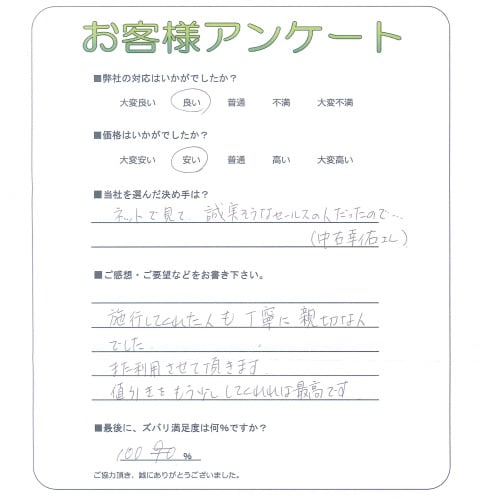 お客様アンケート
■弊社の対応はいかがでしたか？
大変良い 良い 普通 不満 大変不満
■価格はいかがでしたか？
大変安い 安い 普通 高い 大変高い
■当社を選んだ決め手は？
ネットで見て 誠実そうなセールスの人だったので…
(中右幸佑
■ご感想・ご要望などをお書き下さい。
施行してくれた人も丁寧に親切な人
でした．
また利用させて頂きます．
値引きをもう少ししてくれれば最高です
■最後に、ズバリ満足度は何％ですか？
100 90 ％
ご協力頂き、誠にありがとうございました。